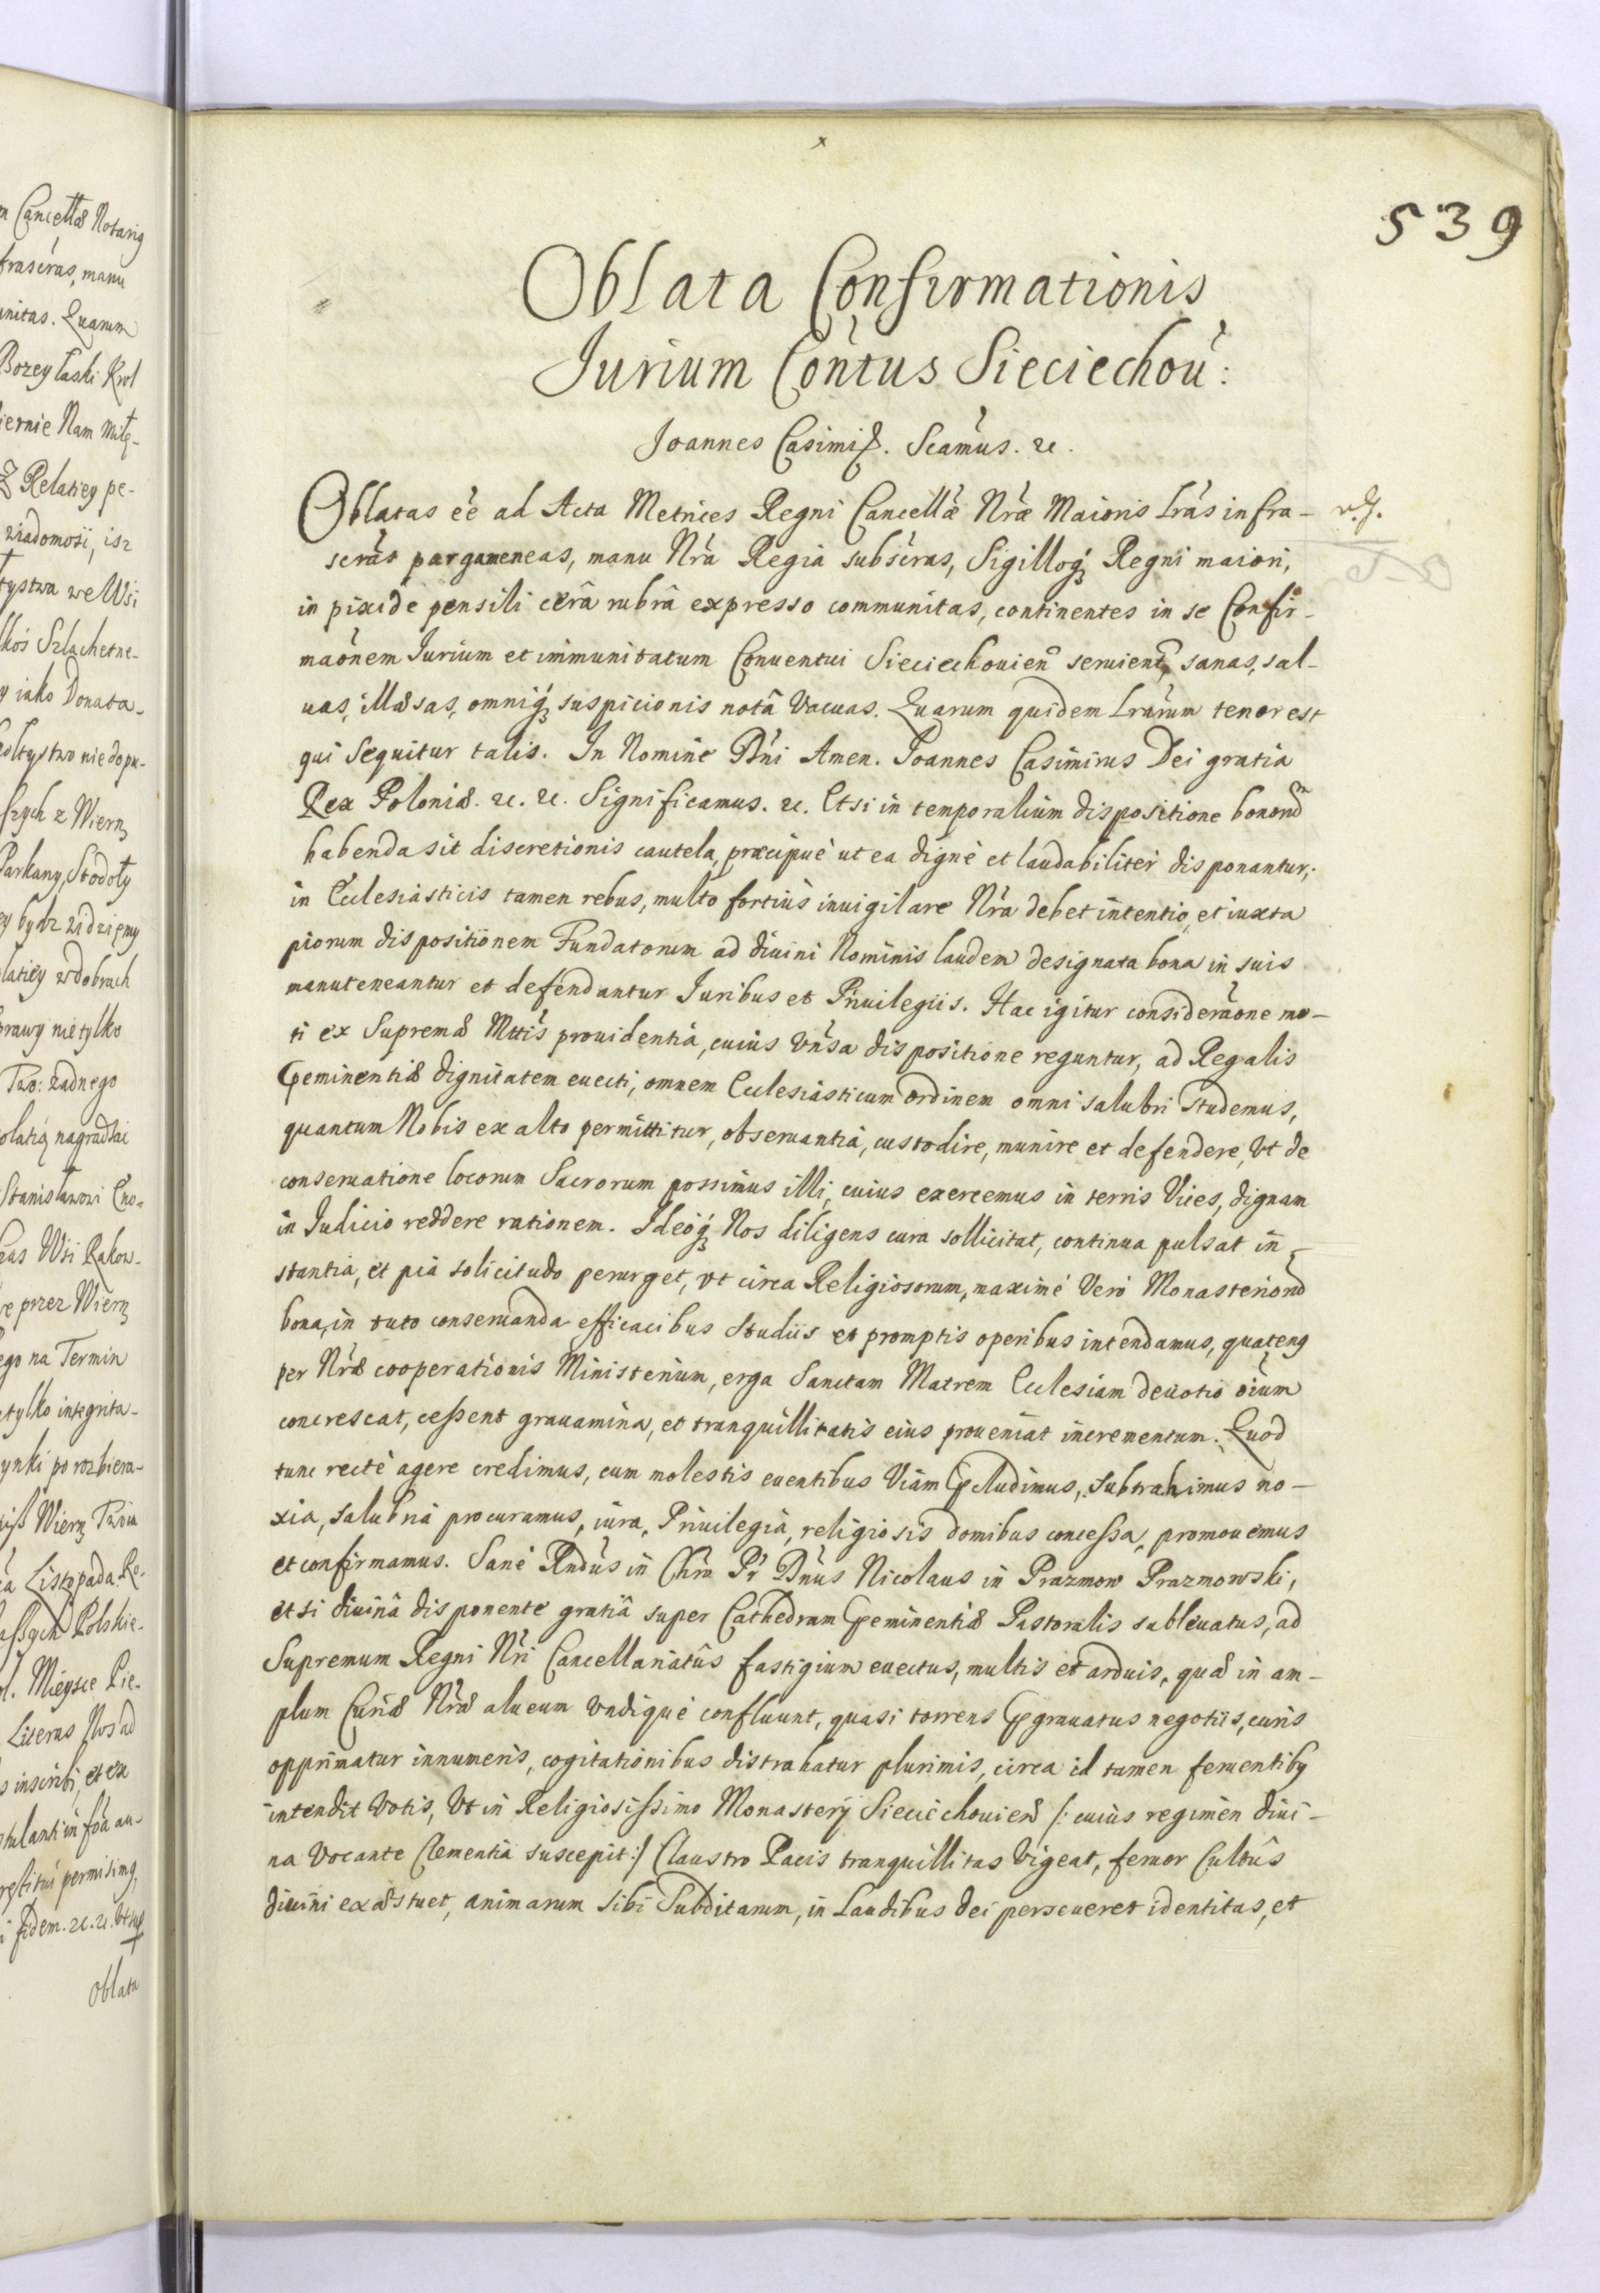 539
Oblata Confirmationis
Jurium Contus Sieciechou:
Joannes Casimir. Scamus. etc.
Oblatas ee ad Acta Metrices Regni Cancellae Nrae Maioris Lras infra-
scras pargameneas, manu Nra Regia subscras, Sigilloq Regni maiori,
in pixide pensili cerâ rubrâ expresso communitas, continentes in se Confir-
maonem Iurium et immunitatum Conuentui Sieciechouien seruient, sanas, sal-
uas, illaesas, omniq suspicionis notâ Vacuas. Quarum quidem Lrarum tenor est
qui Sequitur talis. In Nomine Dni Amen. Joannes Casimirus Dei gratia
Rex Poloniae. etc. etc. Significamus. etc. Etsi in temporalium dispositione bonorum
habenda sit discretionis cautela, praecipuè ut ea dignè et laudabiliter disponantur,
in Ecclesiasticis tamen rebus, multo fortius inuigilare Nra debet intentio, et iuxta
piorum dispositionem Fundatorum ad diuini Nominis laudem designata bona in suis
manuteneantur et defendantur Iuribus et Priuilegiis. Hac igitur consideraone mo-
ti ex Supremae Mttis prouidentiâ, cuius Vnsa dispositione reguntur, ad Regalis
Peminentiae dignitatem euecti, omnem Ecclesiasticum ordinem omni salubri studemus,
quantum Nobis ex alto permittitur, obseruantiâ, custodire, munire et defendere, Vt de
conseruatione locorum Sacrorum possimus illi, cuius exercemus in terris Vices, dignam
in Iudicio reddere rationem. Ideoq Nos diligens cura sollicitat, continua pulsat in-
stantia, et pia solicitudo perurget, vt circa Religiosorum, maximè Verò Monasteriorum
bona, in tuto conseruanda efficacibus Studiis et promptis operibus intendamus, quatenq
per Nrae cooperationis Ministerium, erga Sanctam Matrem Ecclesiam deuotio oium
concrescat, cessent grauamina, et tranquillitatis eius proueniat incrementum. Quod
tunc rectè agere credimus, cum molestis euentibus Viam Pcludimus, subtrahimus no-
xia, salubria procuramus, iura, Priuilegia, religiosis domibus concessa, promouemus
et confirmamus. Sanè Rndus in Chro Pr Dnus Nicolaus in Prazmow Prazmowski,
etsi diuinâ disponente gratiâ super Cathedram Peminentiae Pastoralis subleuatus, ad
Supremum Regni Nri Cancellariatûs fastigium euectus, multis et arduis, quae in am-
plum Curiae Nrae alueum vndiquè confluunt, quasi torrens Pgrauatus negotiis, curis
opprimatur innumeris, cogitationibus distrahatur plurimis, circa id tamen feruentibq
intendit Votis, Vt in Religiosissimo Monasterij Sieciechouien /: cuius regimen diui-
na Vocante Clementia suscepit :/ Claustro Pacis tranquillitas Vigeat, feruor Cultûs
diuini exaestuet, animarum sibi Subditarum, in Laudibus Dei perseueret identitas, et